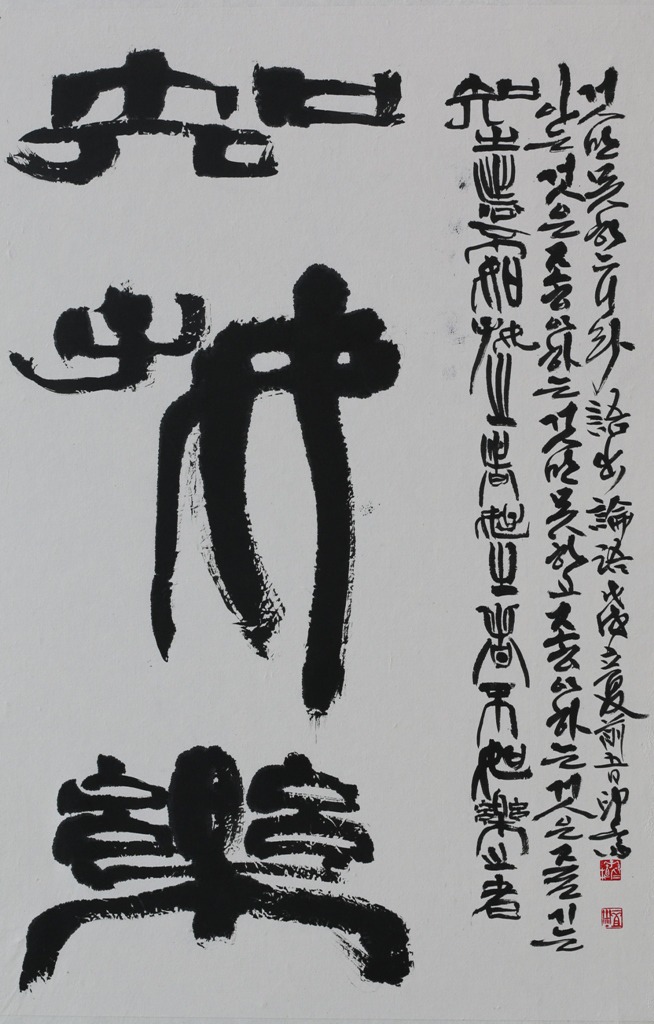 知
好
樂
知之者不如好之者好之者不如樂之者
아는 것은 좋아하는 것만 못하고 좋아하는 것은 즐기는
것만 못하느니라 語出論語 戊戌立夏前五日